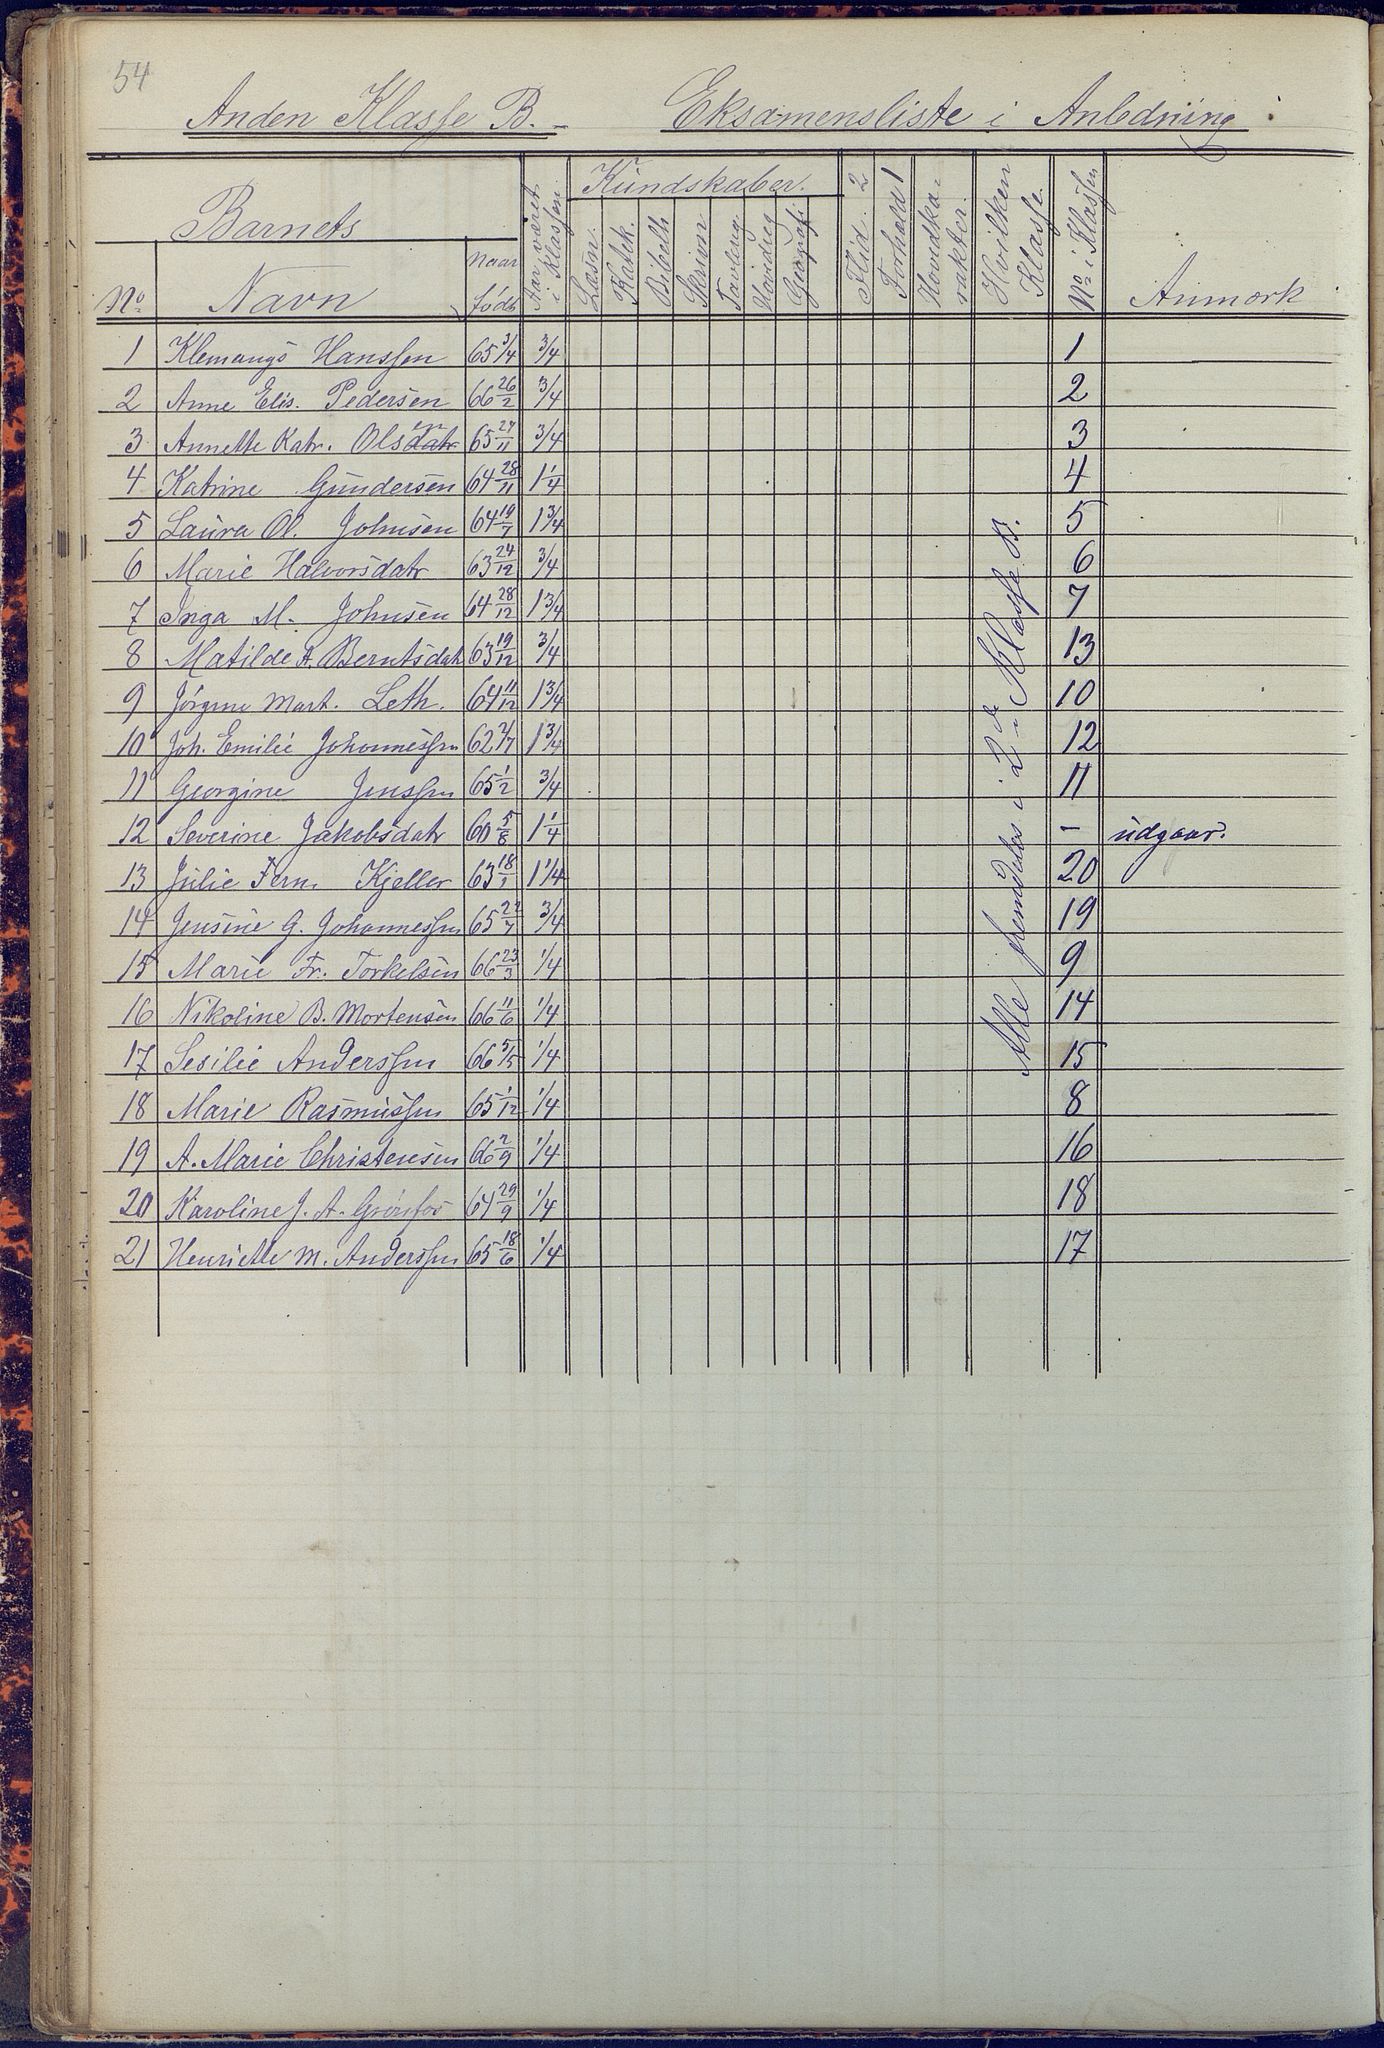 54
Anden Klasse B. – Eksamensliste i Anledning
Barnets
Kundskaber.
No Navn Naar født Aar været i Klassen Læsn. Katek. Bibelh Skrivn Tavlreg. Hovidreg Geografi Flid. 2 Forhold 1 Hovedkarakter. Hvilken Klasse. No i Klassen Anmærk
1 Klemangs Hanssen 65 3/4 3/4 1
2 Anne Elis. Pedersen 66 26/2 3/4 2
3 Annette Katr. Olsdatr en 65 27/11 3/4 3
4 Katrine Gundersen 64 28/11 1 1/4 4
5 Laura Ol. Johnsen 64 19/7 1 3/4 5
6 Marie Halvorsdatr 63 24/12 3/4 6
7 Inga M. Johnsen 64 28/12 1 3/4 7
8 Matilde A. Berntsdatr 63 19/12 3/4 13
9 Jørgine Mart. Leth. 64 11/12 1 3/4 10
10 Joh. Emilie Johannessen 62 2/7 1 3/4 12
11 Georgine Jenssen 65 1/2 3/4 11
12 Severine Jakobsdatr 60 5/8 1 1/4 – udgaar.
13 Julie Fern. Kjeller 63 18/1 1 1/4 20
14 Jensine G. Johannessen 65 22/7 3/4 19
15 Marie Fr. Torkelsen 66 23/3 1/4 9
16 Nikoline B. Mortensen 66 11/6 1/4 14
17 Sesilie Anderssen 66 5/15 1/4 15
18 Marie Rasmussen 65 1/12 1/4 8
19 A. Marie Christensen 66 2/9 1/4 16
20 Karoline J. A. 64 29/9 1/4 18
21 Henriette M. Anderssen 65 18/6 1/4 17
Alle fremdeles i 2den Klasse B.